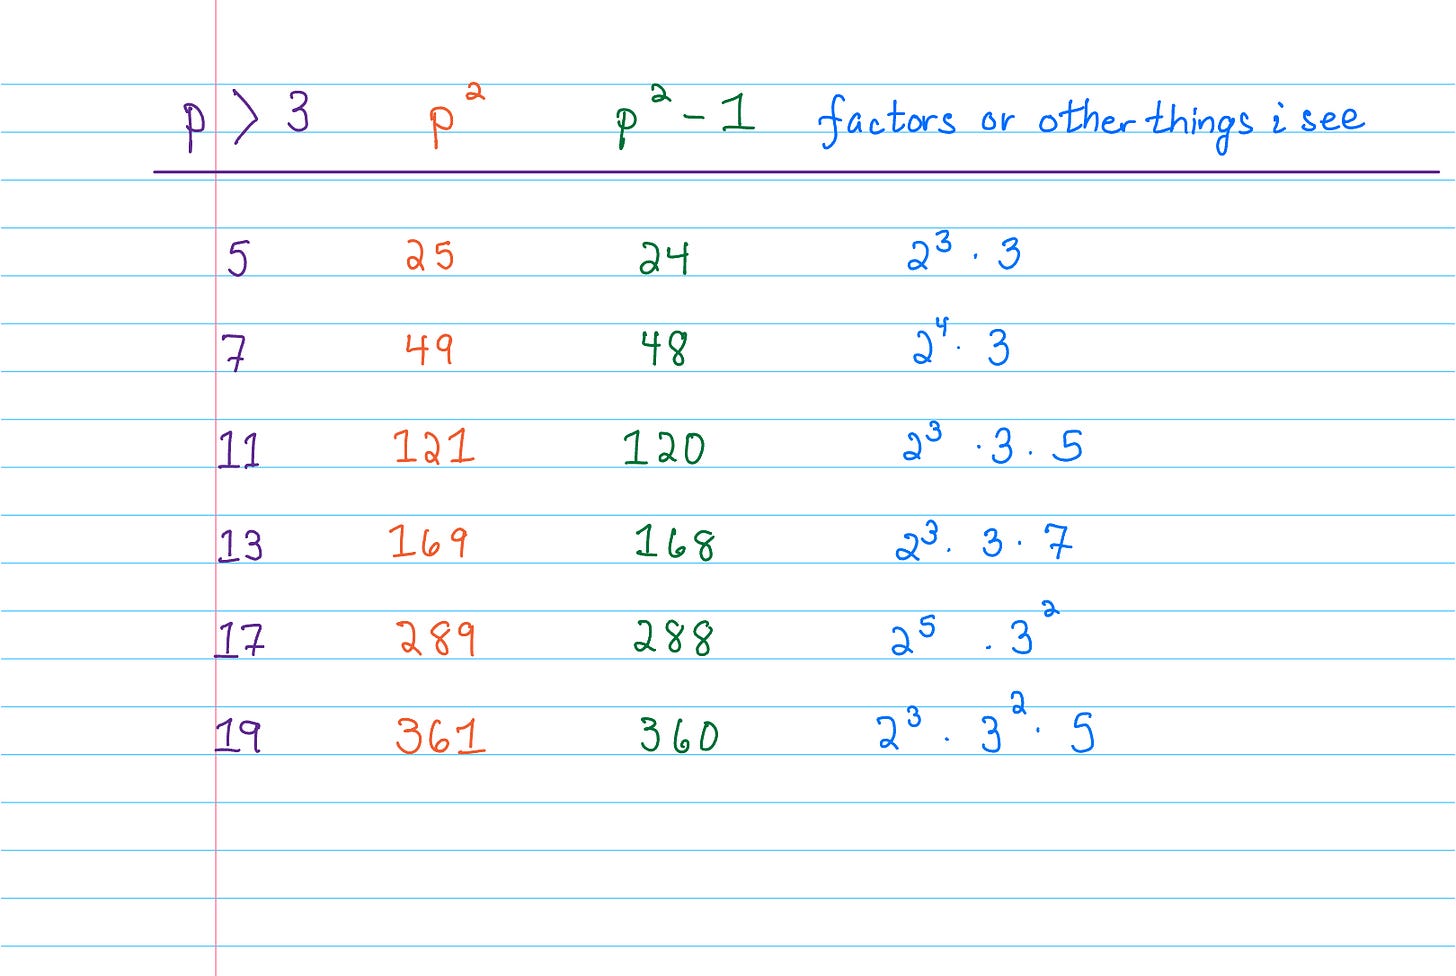 p > 3 p² p² - 1 factors or other things i see
5 25 24 2³ · 3
7 49 48 2⁴ · 3
11 121 120 2³ · 3 · 5
13 169 168 2³ · 3 · 7
17 289 288 2⁵ · 3²
19 361 360 2³ · 3² · 5